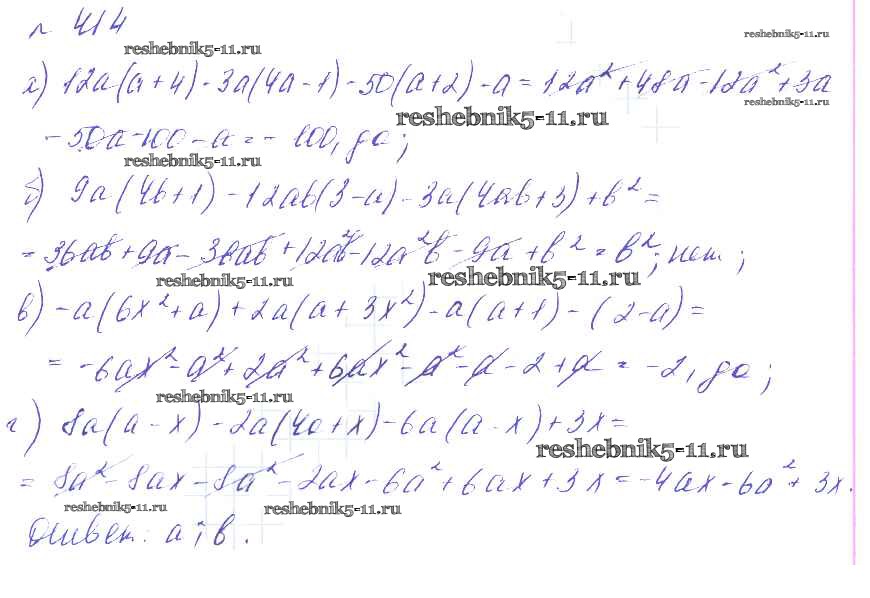 № 414
reshebnik5-11.ru
reshebnik5-11.ru
а) 12a(a+4)-3a(4a-1)-50(a+2)-a=12a²+48a-12a²+3a
reshebnik5-11.ru
reshebnik5-11.ru
-50a-100-a=-100, да;
reshebnik5-11.ru
б) 9a(4b+1)-12ab(3-a)-3a(4ab+3)+b²=
=36ab+9a-36ab+12a²b-12a²b-9a+b²=b²; нет;
reshebnik5-11.ru
reshebnik5-11.ru
в) -a(6x²+a)+2a(a+3x²)-a(a+1)-(2-a)=
=-6ax²-a²+2a²+6ax²-a²-a-2+a=-2, да;
reshebnik5-11.ru
г) 8a(a-x)-2a(4a+x)-6a(a-x)+3x=
reshebnik5-11.ru
=8a²-8ax-8a²-2ax-6a²+6ax+3x=-4ax-6a²+3x.
reshebnik5-11.ru
reshebnik5-11.ru
Ответ: а; в.